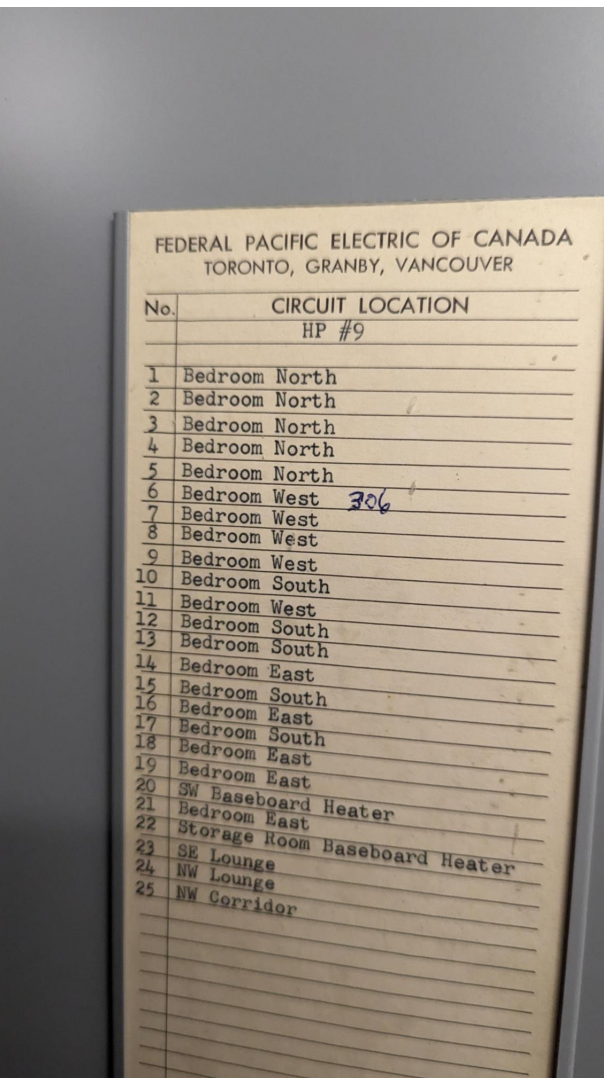 FEDERAL PACIFIC ELECTRIC OF CANADA
TORONTO, GRANBY, VANCOUVER
No. CIRCUIT LOCATION
HP #9
1 Bedroom North
2 Bedroom North
3 Bedroom North
4 Bedroom North
5 Bedroom North
6 Bedroom West 306
7 Bedroom West
8 Bedroom West
9 Bedroom West
10 Bedroom South
11 Bedroom West
12 Bedroom South
13 Bedroom South
14 Bedroom East
15 Bedroom South
16 Bedroom East
17 Bedroom South
18 Bedroom East
19 Bedroom East
20 SW Baseboard Heater
21 Bedroom East
22 Storage Room Baseboard Heater
23 SE Lounge
24 NW Lounge
25 NW Corridor